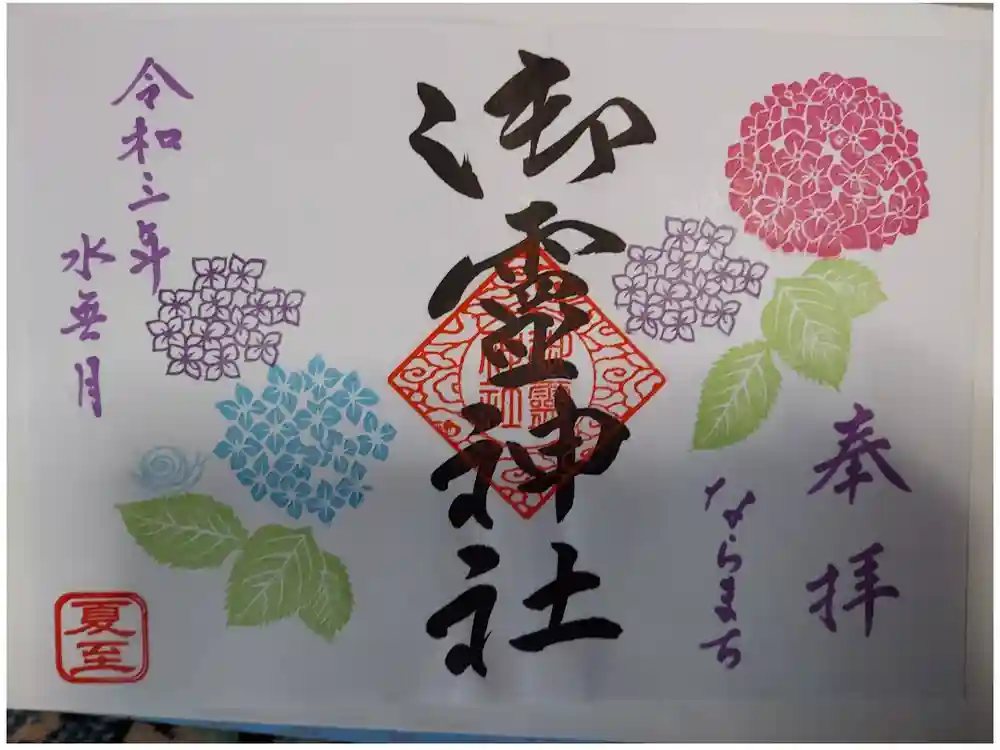 奉拝
ならまち
御靈神社
御靈
神社
令和三年
水無月
夏至